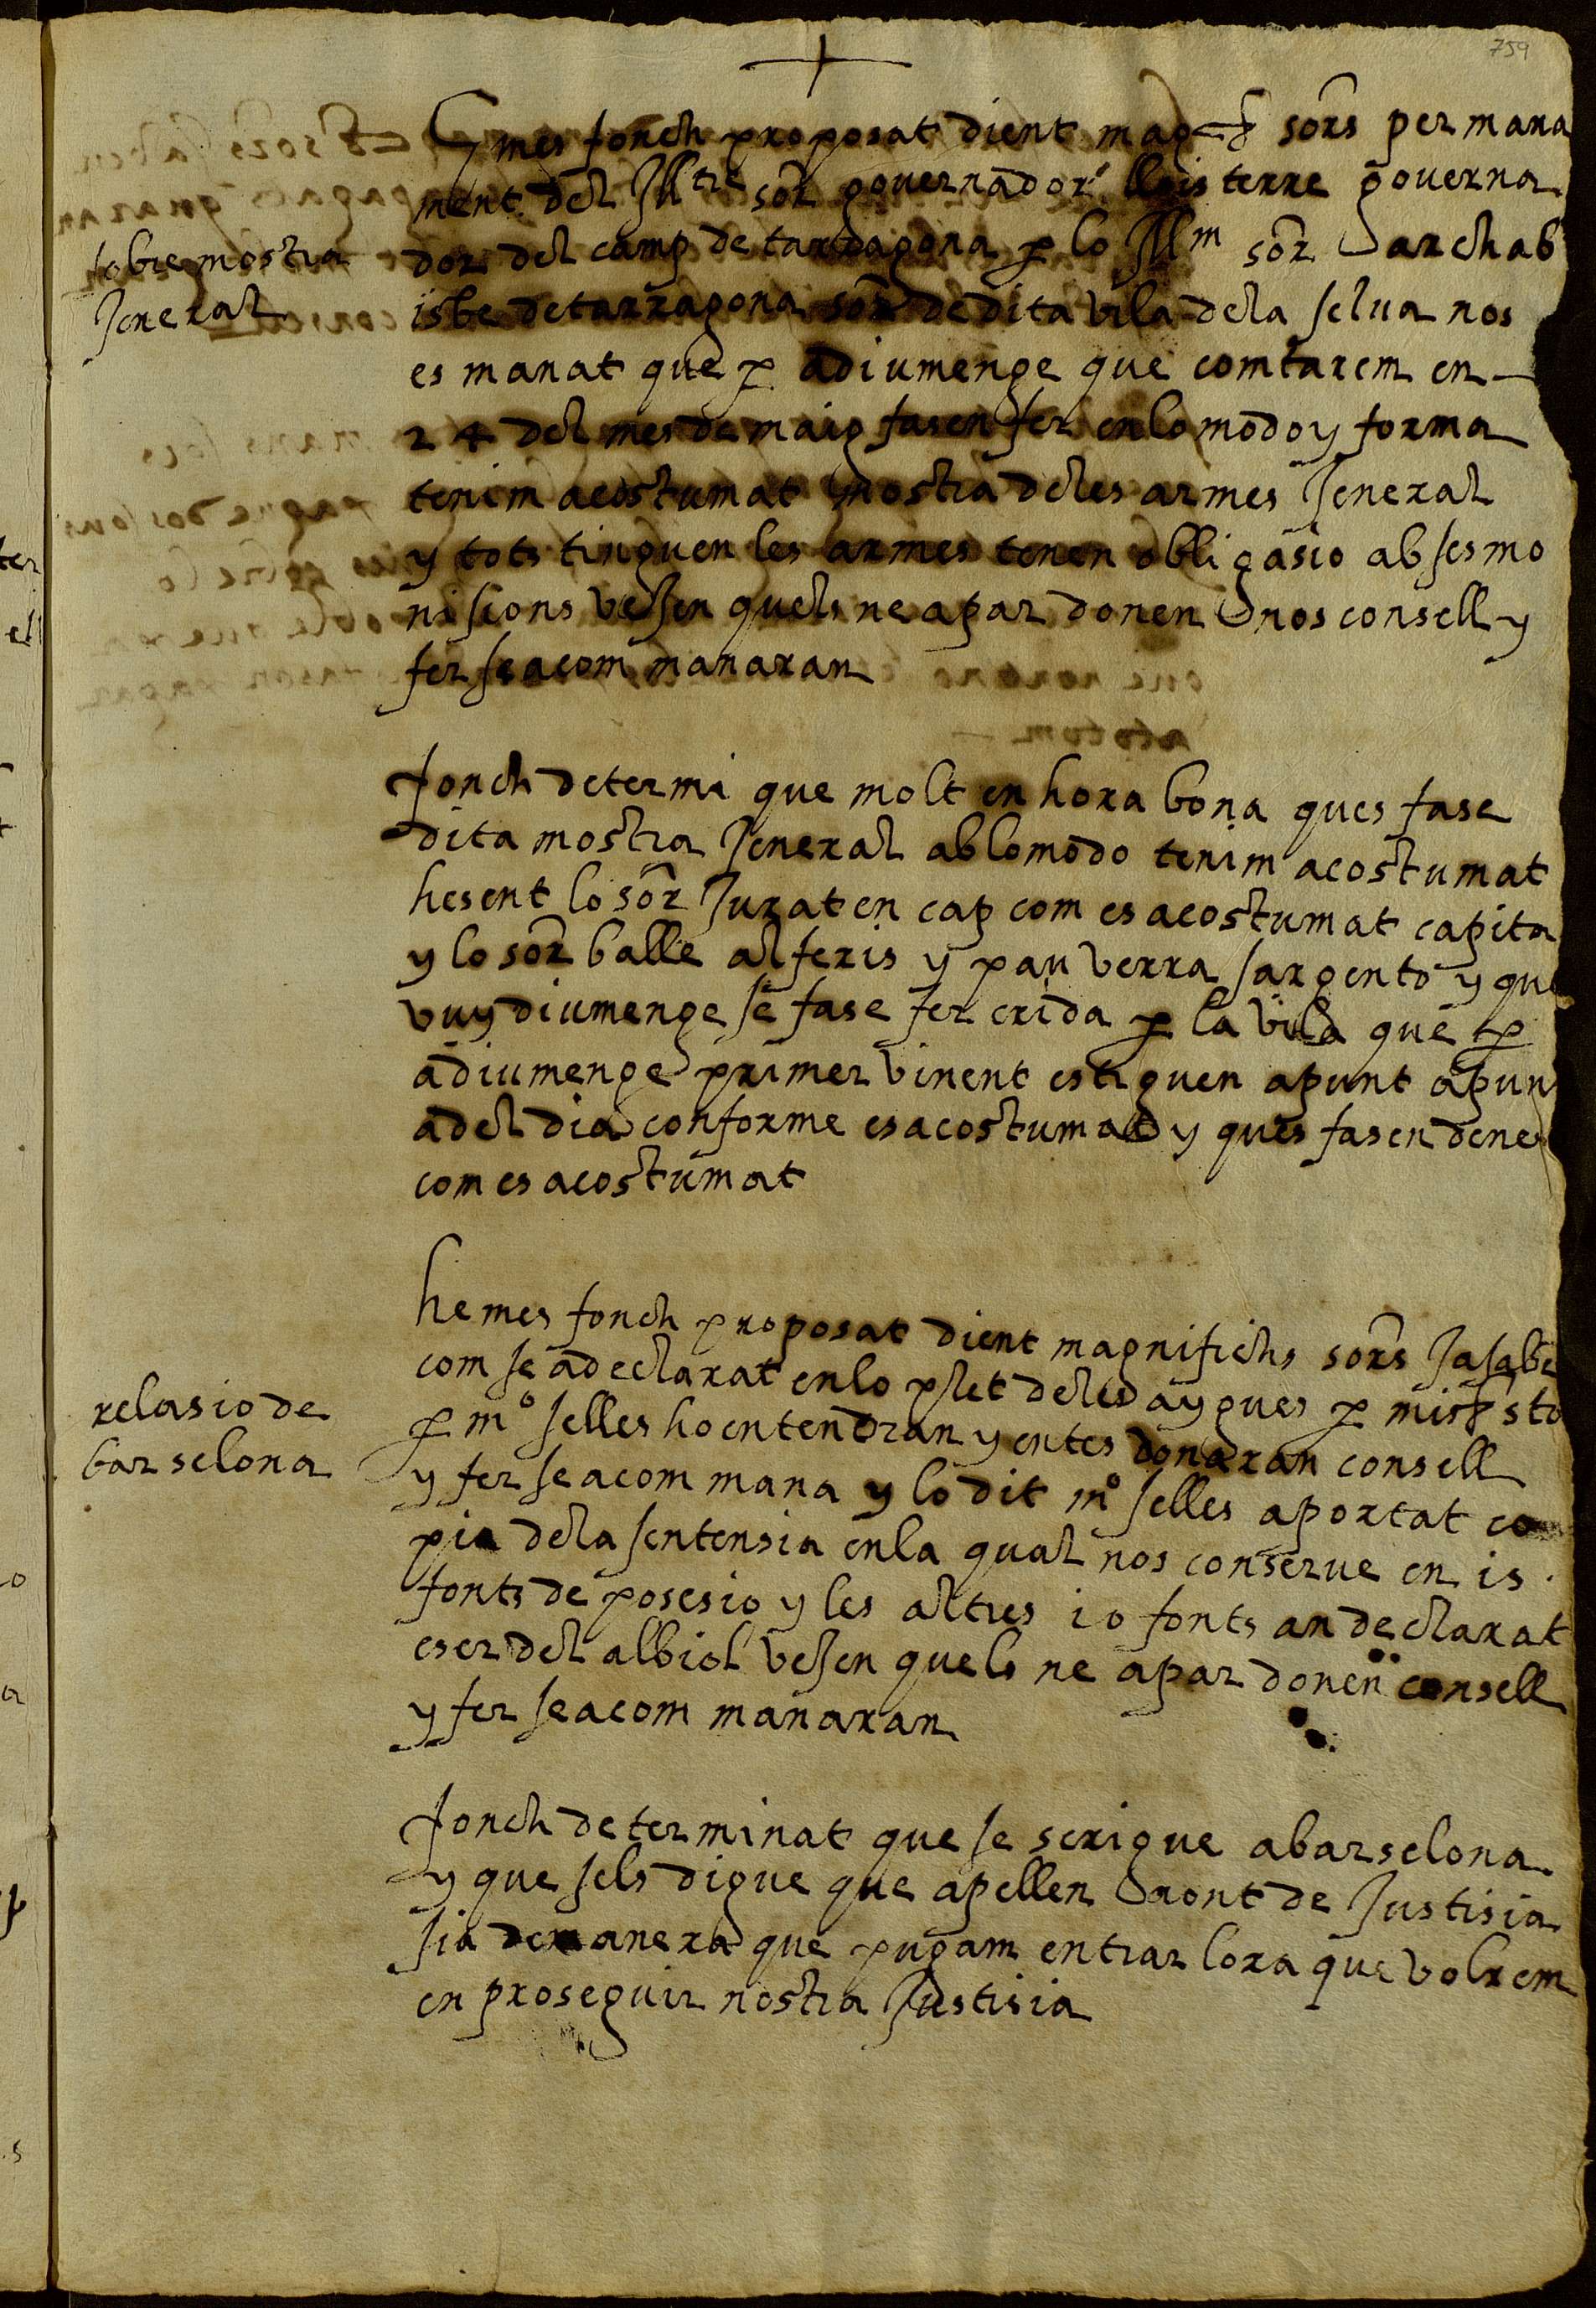 759
Y mes fonch proposat dient mag<sup>chs</sup> sors per mana
ment del Ill<sup>tre</sup> sor governador llois terre governa
sobre mostra
Jeneral
dor del camp de tarragona p lo Ill<sup>m</sup> sor archab
isbe de tarragona sor de dita vila dela selua nos
es manat que p a diumenge que comtarem en
24 del mes de maig fasen fer en lo modo y forma
tenim acostumat mostra deles armes Jeneral
y tots tinguen les armes tenen obligasio ab ses mo
nisions vesen quels ne apar donen nos consell y
fer sea com manaran
fonch determi que molt en hora bona ques fase
dita mostra Jeneral ab lo modo tenim acostumat
hesent lo sor Jurat en cap com es acostumat capita
y lo sor balle alferis y pau verra sargento y que
vuy diumenge se fase fer crida p la vila que p
a diumenge primer vinent estiguen apunt apun
a del dia conforme es acostumat y ques fasen dene
com es acostumat
he mes fonch proposat dient magnifichs sors Ja sabe
com se a declarat en lo plet deles aygues p
relasio de
barselona
p m<sup>o</sup> selles ho entendran y entes donaran consell
y fer sea com mana y lo dit m<sup>o</sup> selles aportat co
pia dela sentensia en la qual nos conserve en is
fonts de posesio y les altres io fonts an declarat
eser del albiol vesen quels ne apar donen consell
y fer sea com manaran
fonch determinat que se scrigue a barselona
y que sels digue que apellen ront de Justisia
sia de manera que pugam entrar lora que volrem
en proseguir nostra Justisia